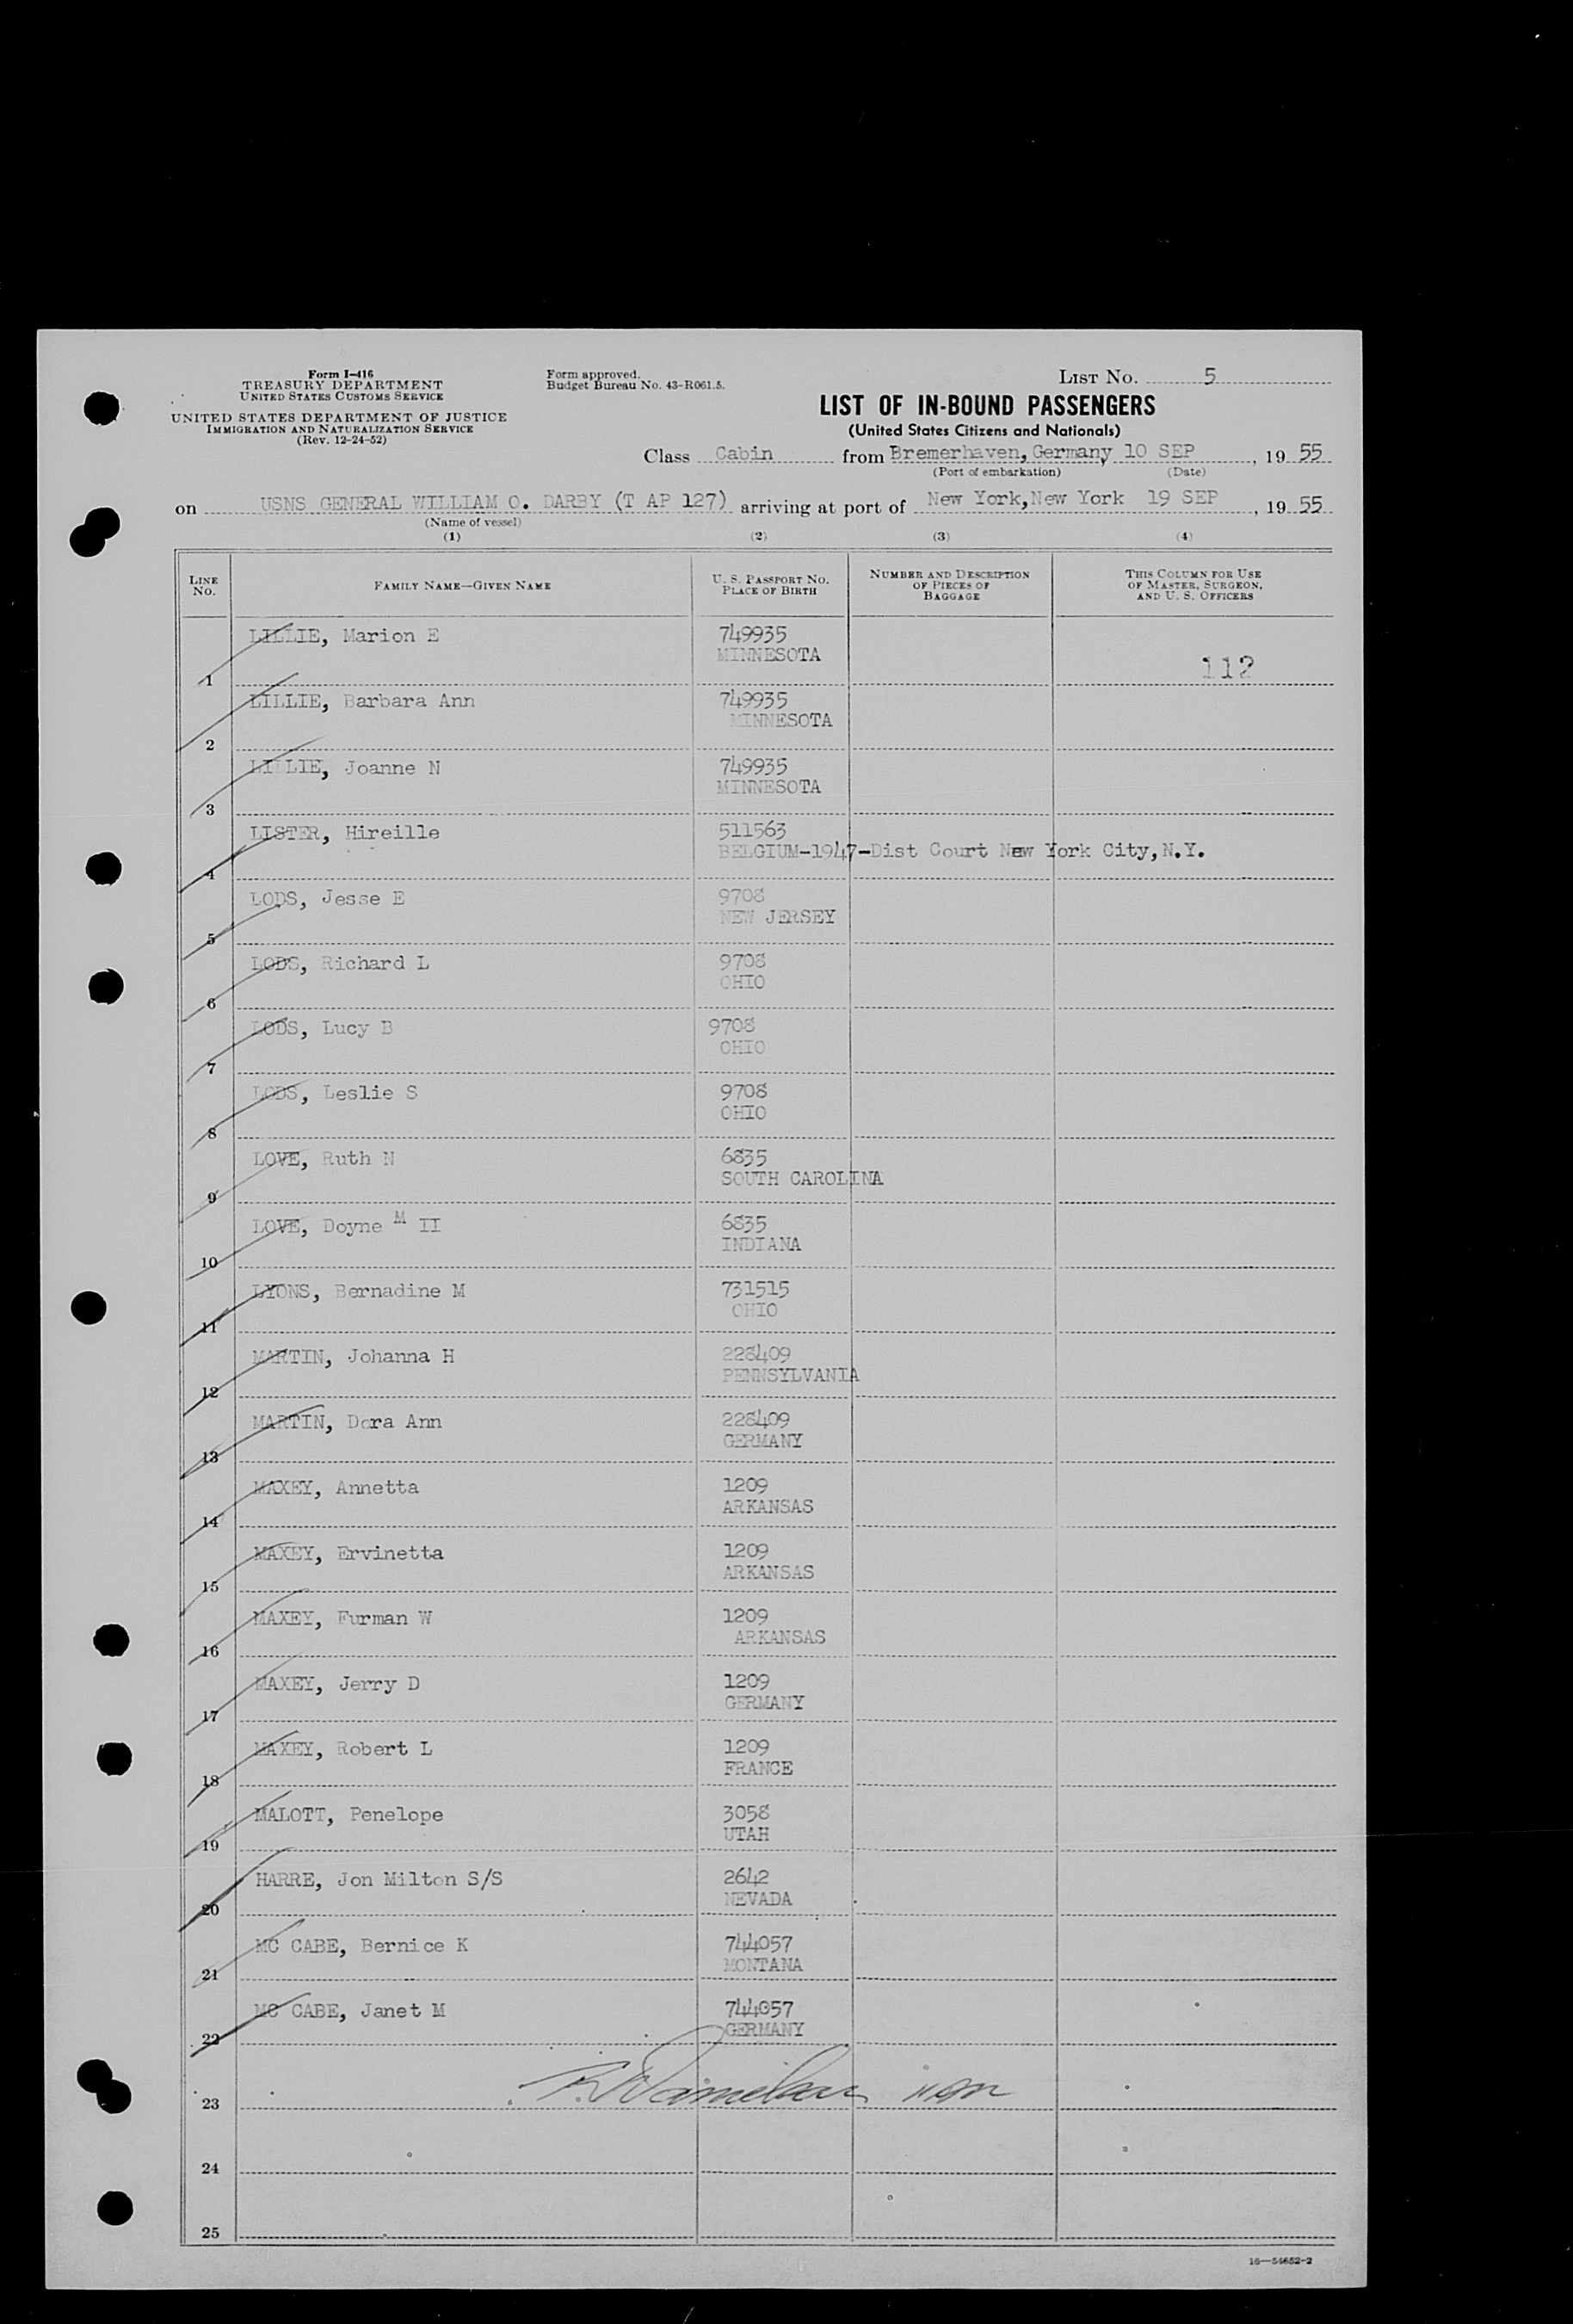 Form I-416
TREASURY DEPARTMENT
UNITED STATES CUSTOMS SERVICE
UNITED STATES DEPARTMENT OF JUSTICE
IMMIGRATION AND NATURALIZATION SERVICE
(Rev. 12-24-52)
Form approved.
Budget Bureau No. 43-R061.5.
LIST NO. 5
LIST OF IN-BOUND PASSENGERS
(United States Citizens and Nationals)
Class Cabin from Bremerhaven, Germany 10 SEP, 19 55
(Port of embarkation) (Date)
on USNS GENERAL WILLIAM O. DARBY (T AP 127) arriving at port of New York, New York 19 SEP, 19 55
(Name of vessel)
(1) (2) (3) (4)
LINE NO. FAMILY NAME—GIVEN NAME U. S. PASSPORT NO. PLACE OF BIRTH NUMBER AND DESCRIPTION OF PIECES OF BAGGAGE THIS COLUMN FOR USE OF MASTER, SURGEON, AND U. S. OFFICERS
LILLIE, Marion E 749935
MINNESOTA
1 112
LILLIE, Barbara Ann 749935
MINNESOTA
2
LILLIE, Joanne N 749935
MINNESOTA
3
LISTER, Hireille 511563
BELGIUM-1947-Dist Court New York City, N.Y.
4
LODS, Jesse E 9708
NEW JERSEY
5
LODS, Richard L 9708
OHIO
6
LODS, Lucy B 9708
OHIO
7
LODS, Leslie S 9708
OHIO
8
LOVE, Ruth N 6835
SOUTH CAROLINA
9
LOVE, Doyne M II 6835
INDIANA
10
LYONS, Bernadine M 731515
OHIO
11
MARTIN, Johanna H 228409
PENNSYLVANIA
12
MARTIN, Dora Ann 228409
GERMANY
13
MAXEY, Annetta 1209
ARKANSAS
14
MAXEY, Ervinetta 1209
ARKANSAS
15
MAXEY, Furman W 1209
ARKANSAS
16
MAXEY, Jerry D 1209
GERMANY
17
MAXEY, Robert L 1209
FRANCE
18
MALOTT, Penelope 3058
UTAH
19
HARRE, Jon Milton S/S 2642
NEVADA
20
MC CABE, Bernice K 744057
MONTANA
21
MC CABE, Janet M 744057
GERMANY
22
23
24
25
16—54652-2